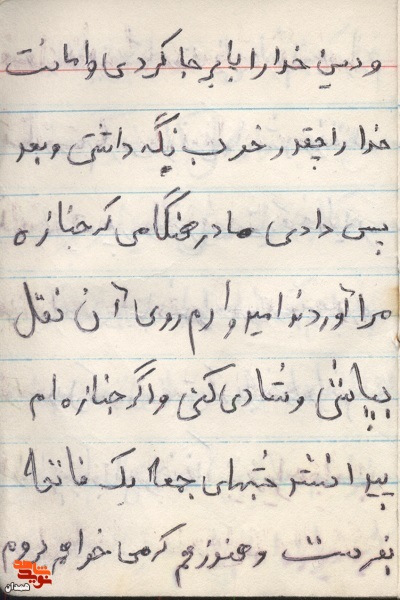 و دین خدا را پا بر جا کردی و امانت
خدا را چقدر خوب نگه داشتی و بعد
پس دادی مادر هنگامی که جنازه
مرا آوردند امیدوارم روی آن نقل
بپاشی و شادی کنی و اگر جنازه ام
پیدا نشد شبهای جمعه یک فاتحه
بفرست و هنوز هم که می خواهم بروم
نوید شاهد
همدان